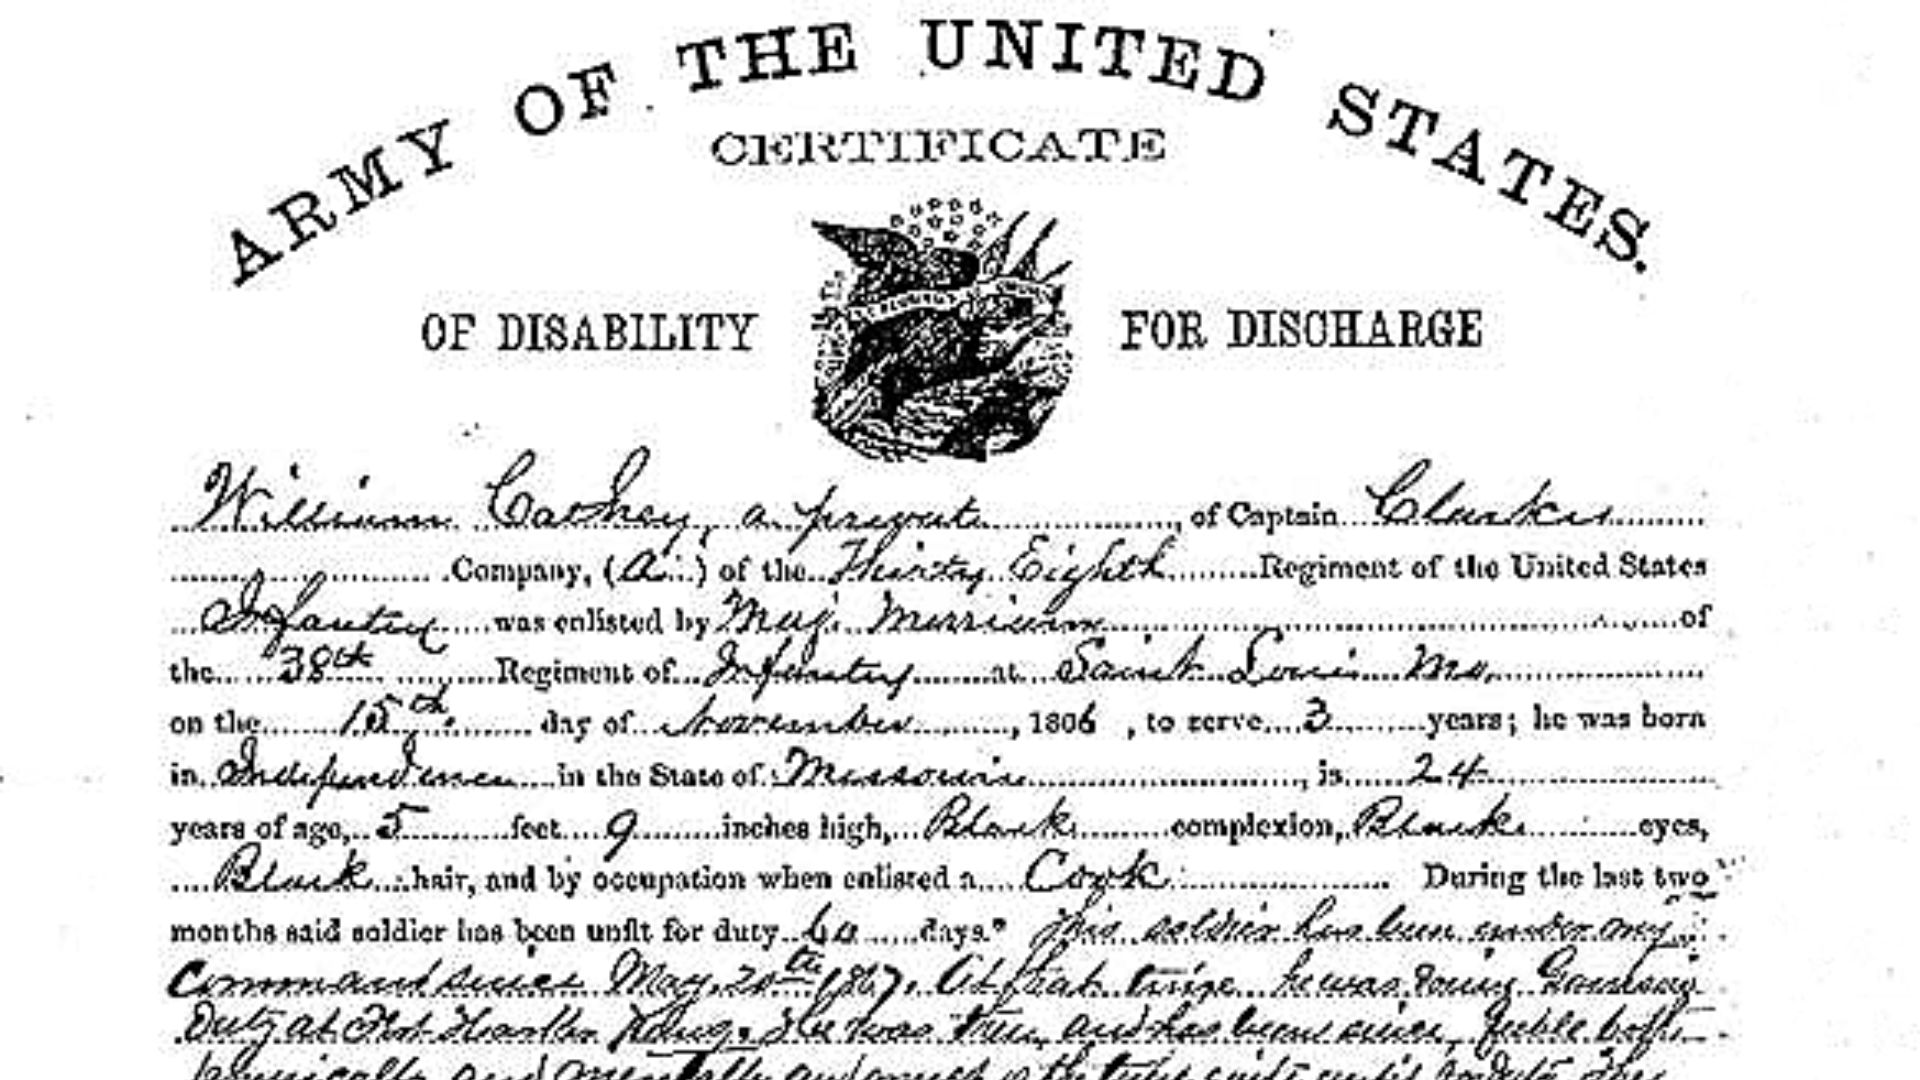 ARMY OF THE UNITED STATES.
CERTIFICATE
OF DISABILITY FOR DISCHARGE
William Cathey, a private, of Captain Clarkes
Company, (A) of the Thirty Eighth Regiment of the United States
Infantry was enlisted by Maj. Merriam of
the 38th Regiment of Infantry at Saint Louis Mo.
on the 15th day of November, 1866, to serve 3 years; he was born
in Independence in the State of Missouri, is 24
years of age, 5 feet 9 inches high, Black complexion, Black eyes,
Black hair, and by occupation when enlisted a Cook During the last two
months said soldier has been unfit for duty 60 days.* This soldier has been under my
command since May 20th 1867. At that time he was doing Garrison
Duty at Fort Harker He was then, and has been since, feeble both
physically and mentally and much of the time quite unfit for duty. The